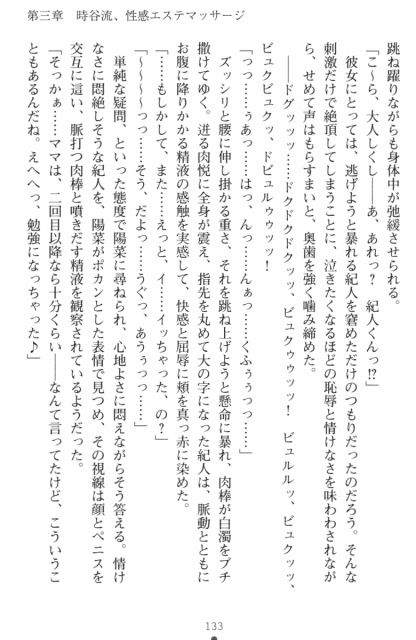 第三章　時谷流、性感エステマッサージ
跳ね躍りながらも身体中が弛緩させられる。
「こ～ら、大人しくし――あ、あれっ？　紀人くんっ!?」
彼女にとっては、逃げようと暴れる紀人を窘めただけのつもりだったのだろう。そんな
刺激だけで絶頂してしまうことに、泣きたくなるほどの恥辱と情けなさを味わわされなが
ら、せめて声はもらすまいと、奥歯を強く噛み締めた。
――ドグッッッ……ドクドクドクッッ、ビュクゥゥッッ！　ビュルルッ、ビュクッッ、
ビュクビュクッッ、ドビュルゥゥッッ！
「っっ……ぅあっっ……はっ、んっ……んぁっ……くふぅぅっっ……」
ズッシリと腰に伸し掛かる重さ、それを跳ね上げようと懸命に暴れ、肉棒が白濁をブチ
撒けてゆく。迸る肉悦に全身が震え、指先を丸めて大の字になった紀人は、脈動とともに
お腹に降りかかる精液の感触を実感して、快感と屈辱に頬を真っ赤に染めた。
「……もしかして、また……えっと、イ……イッちゃった、の？」
「～～～～っっ……そう、だよっ……うぐっ、あうぅっっ……」
単純な疑問、といった態度で陽菜に尋ねられ、心地よさに悶えながらそう答える。情け
なさに悶絶しそうな紀人を、陽菜がポカンとした表情で見つめ、その視線は顔とペニスを
交互に這い、脈打つ肉棒と噴きだす精液を観察されているようだった。
「そっかぁ……ママは、二回目以降なら十分くらい――なんて言ってたけど、こういうこ
ともあるんだね。えへへっ、勉強になっちゃった♪」
133